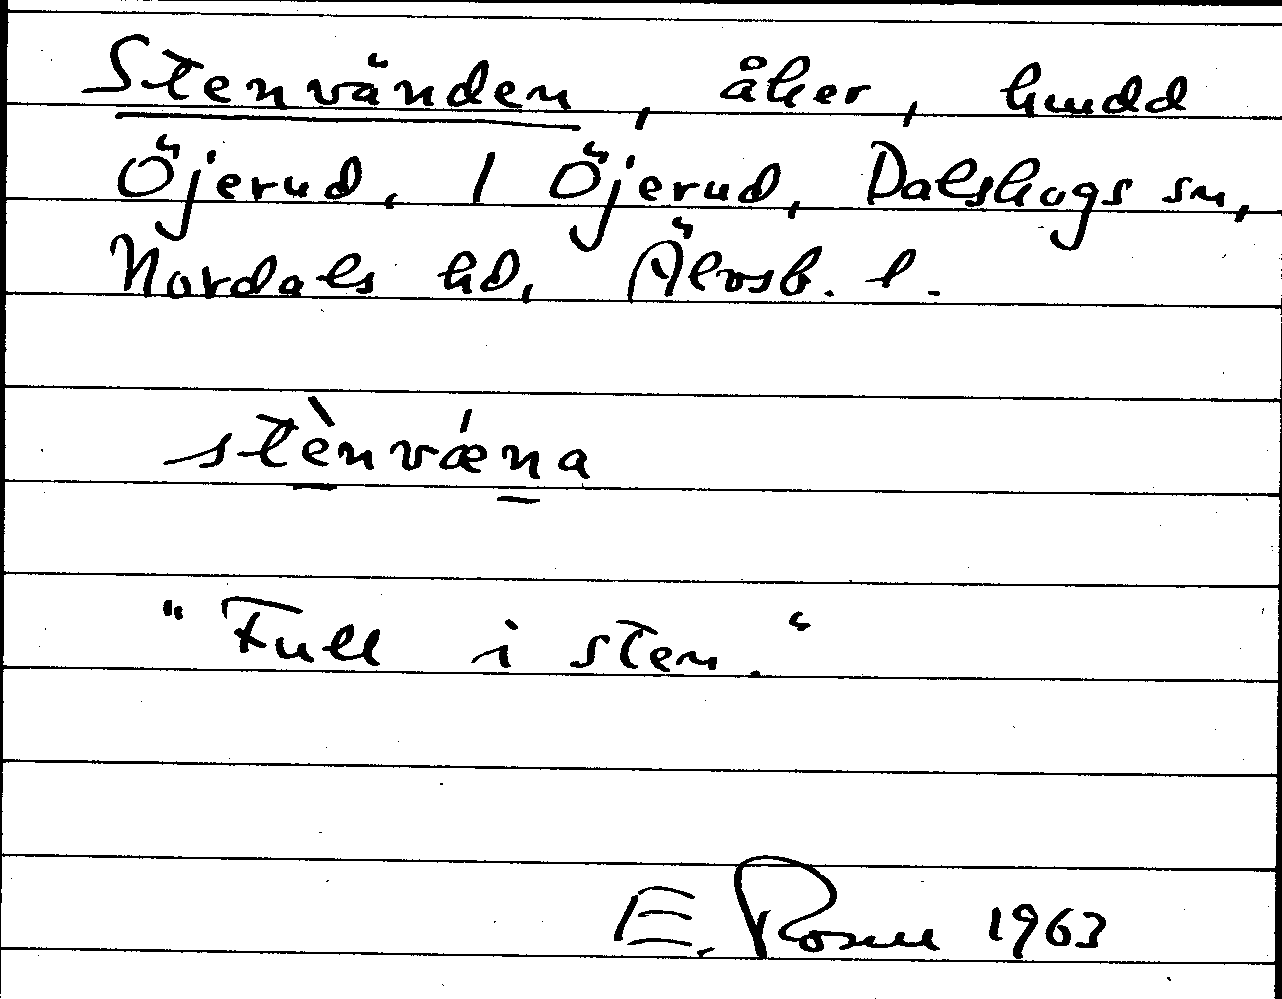 Stenvänden, åker, hmdd
Öjerud, 1 Öjerud, Dalskogs sn,
Nordals hd, Älvsb. l.
stènvǽna
"Full i sten."
E. Rosen 1963